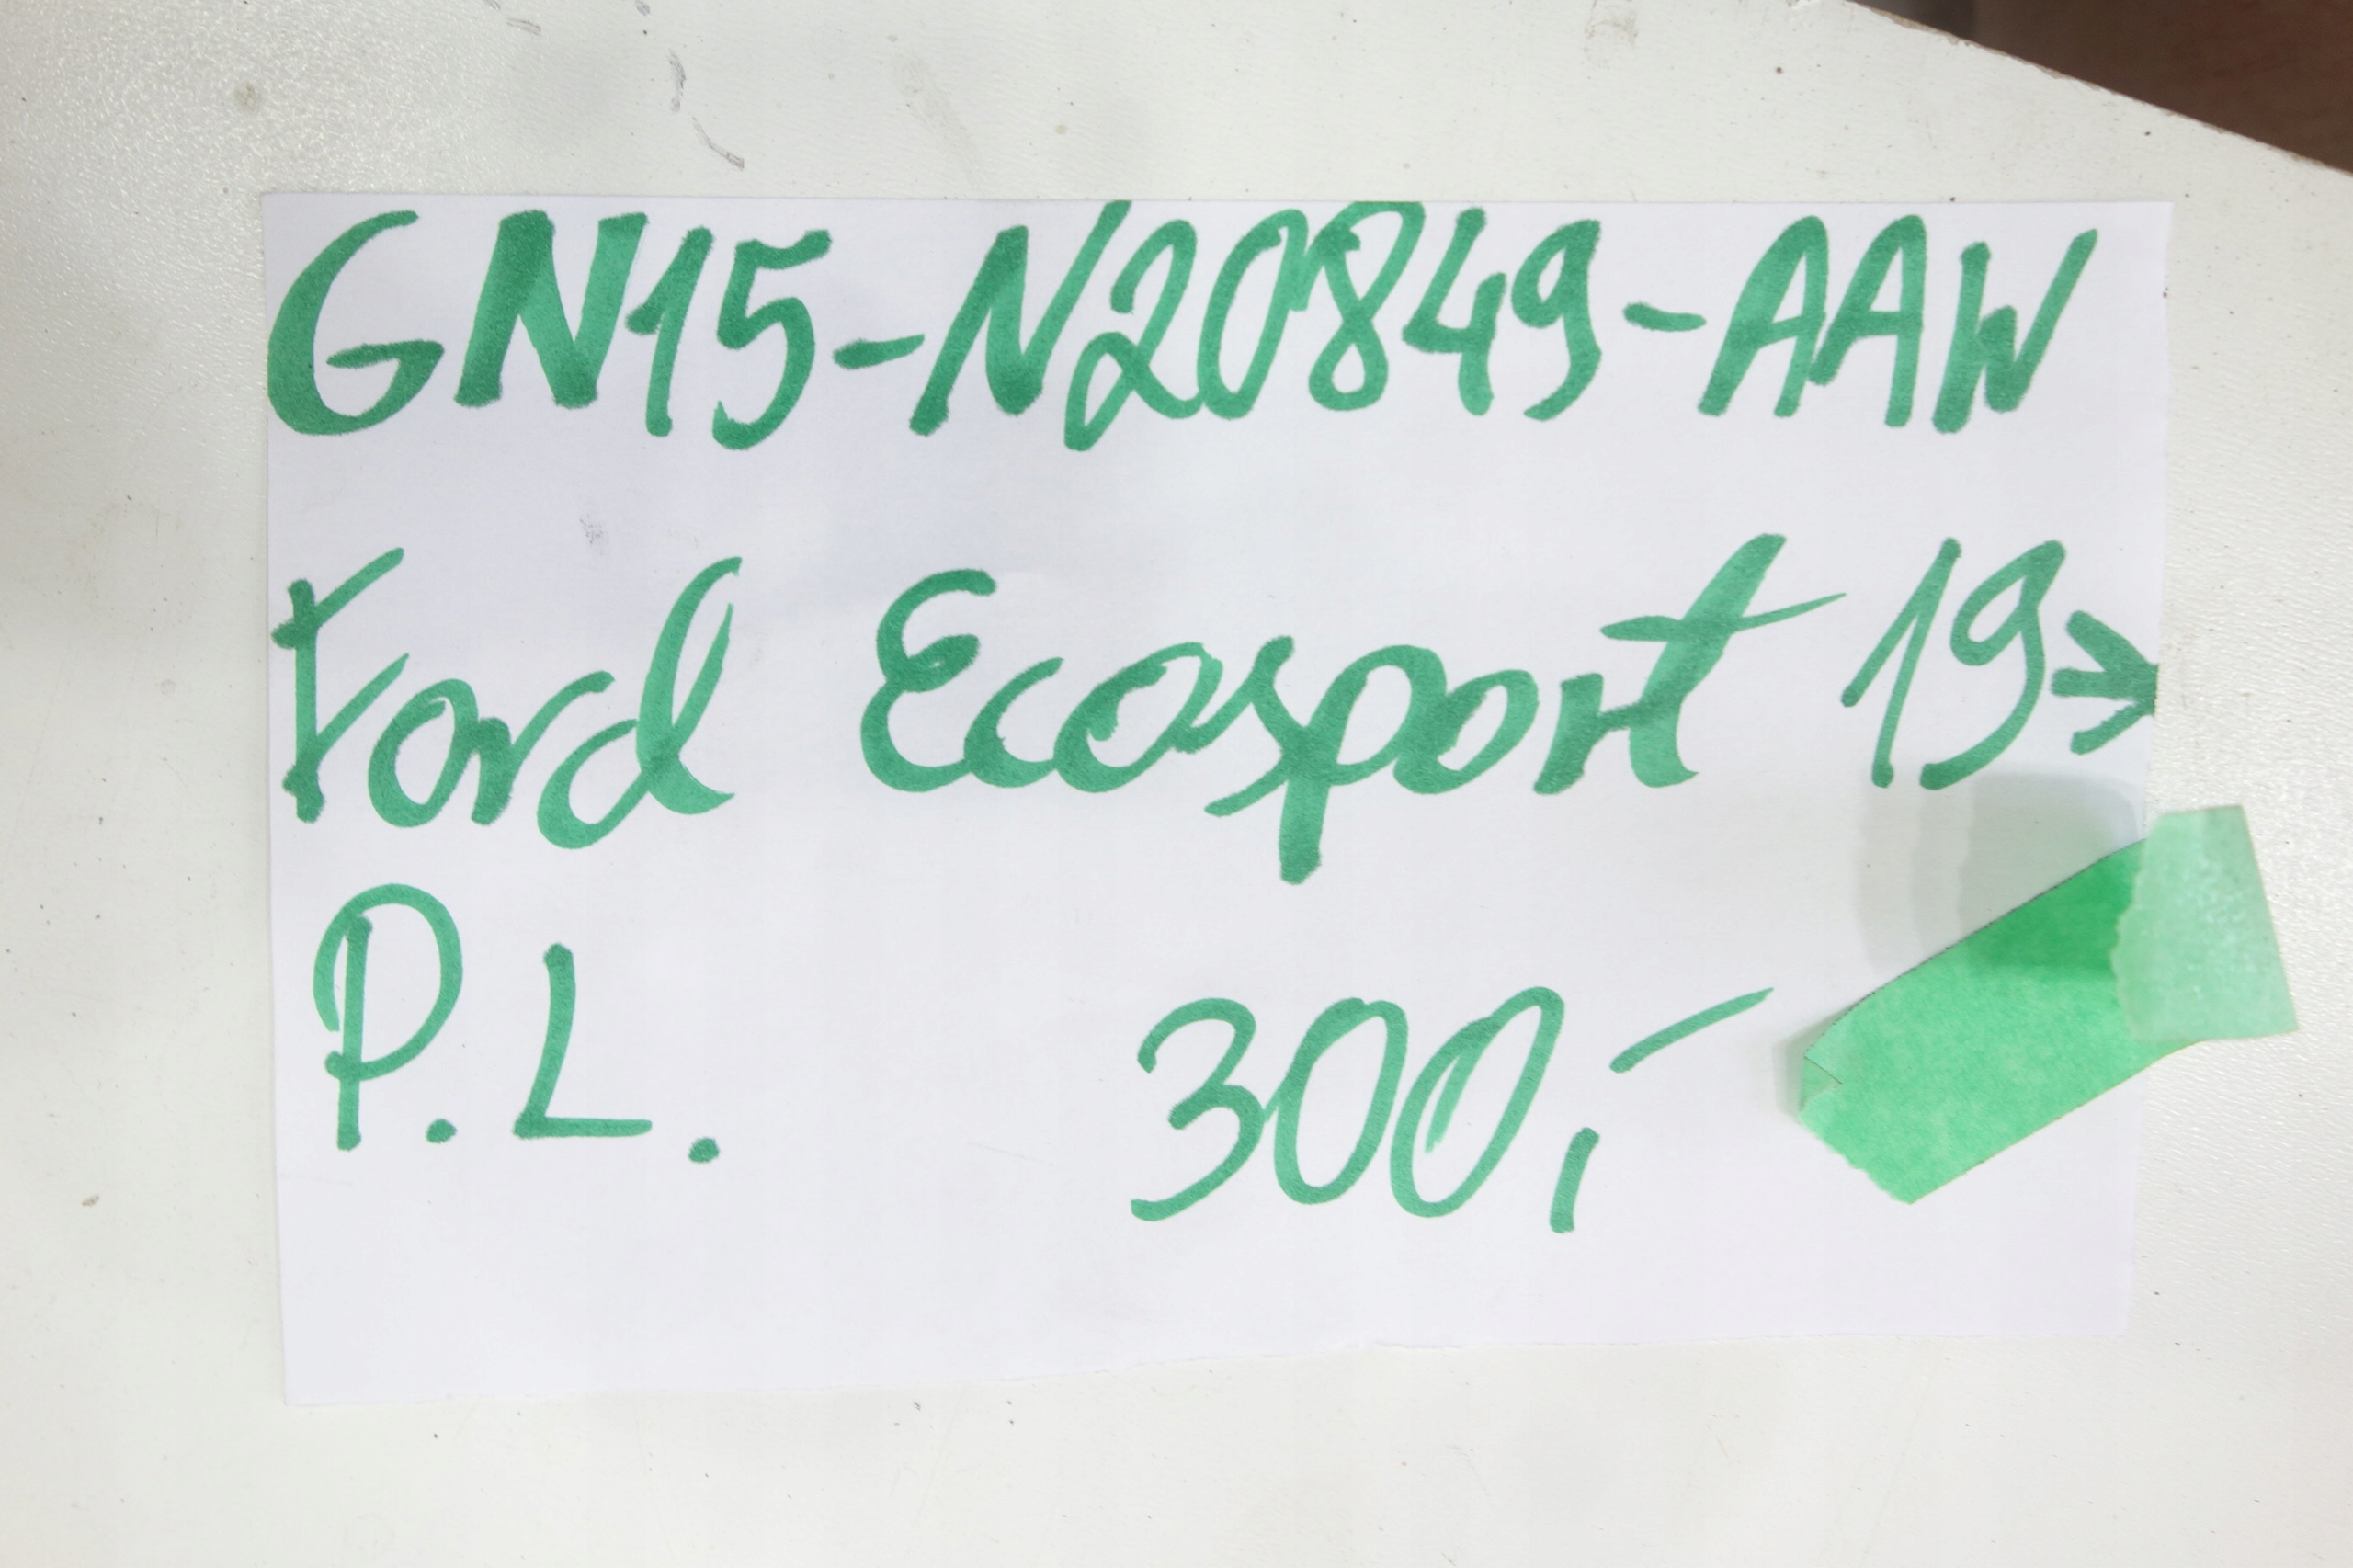 GN15-N20849-AAW
Ford Ecosport 19→
P.L. 300,-